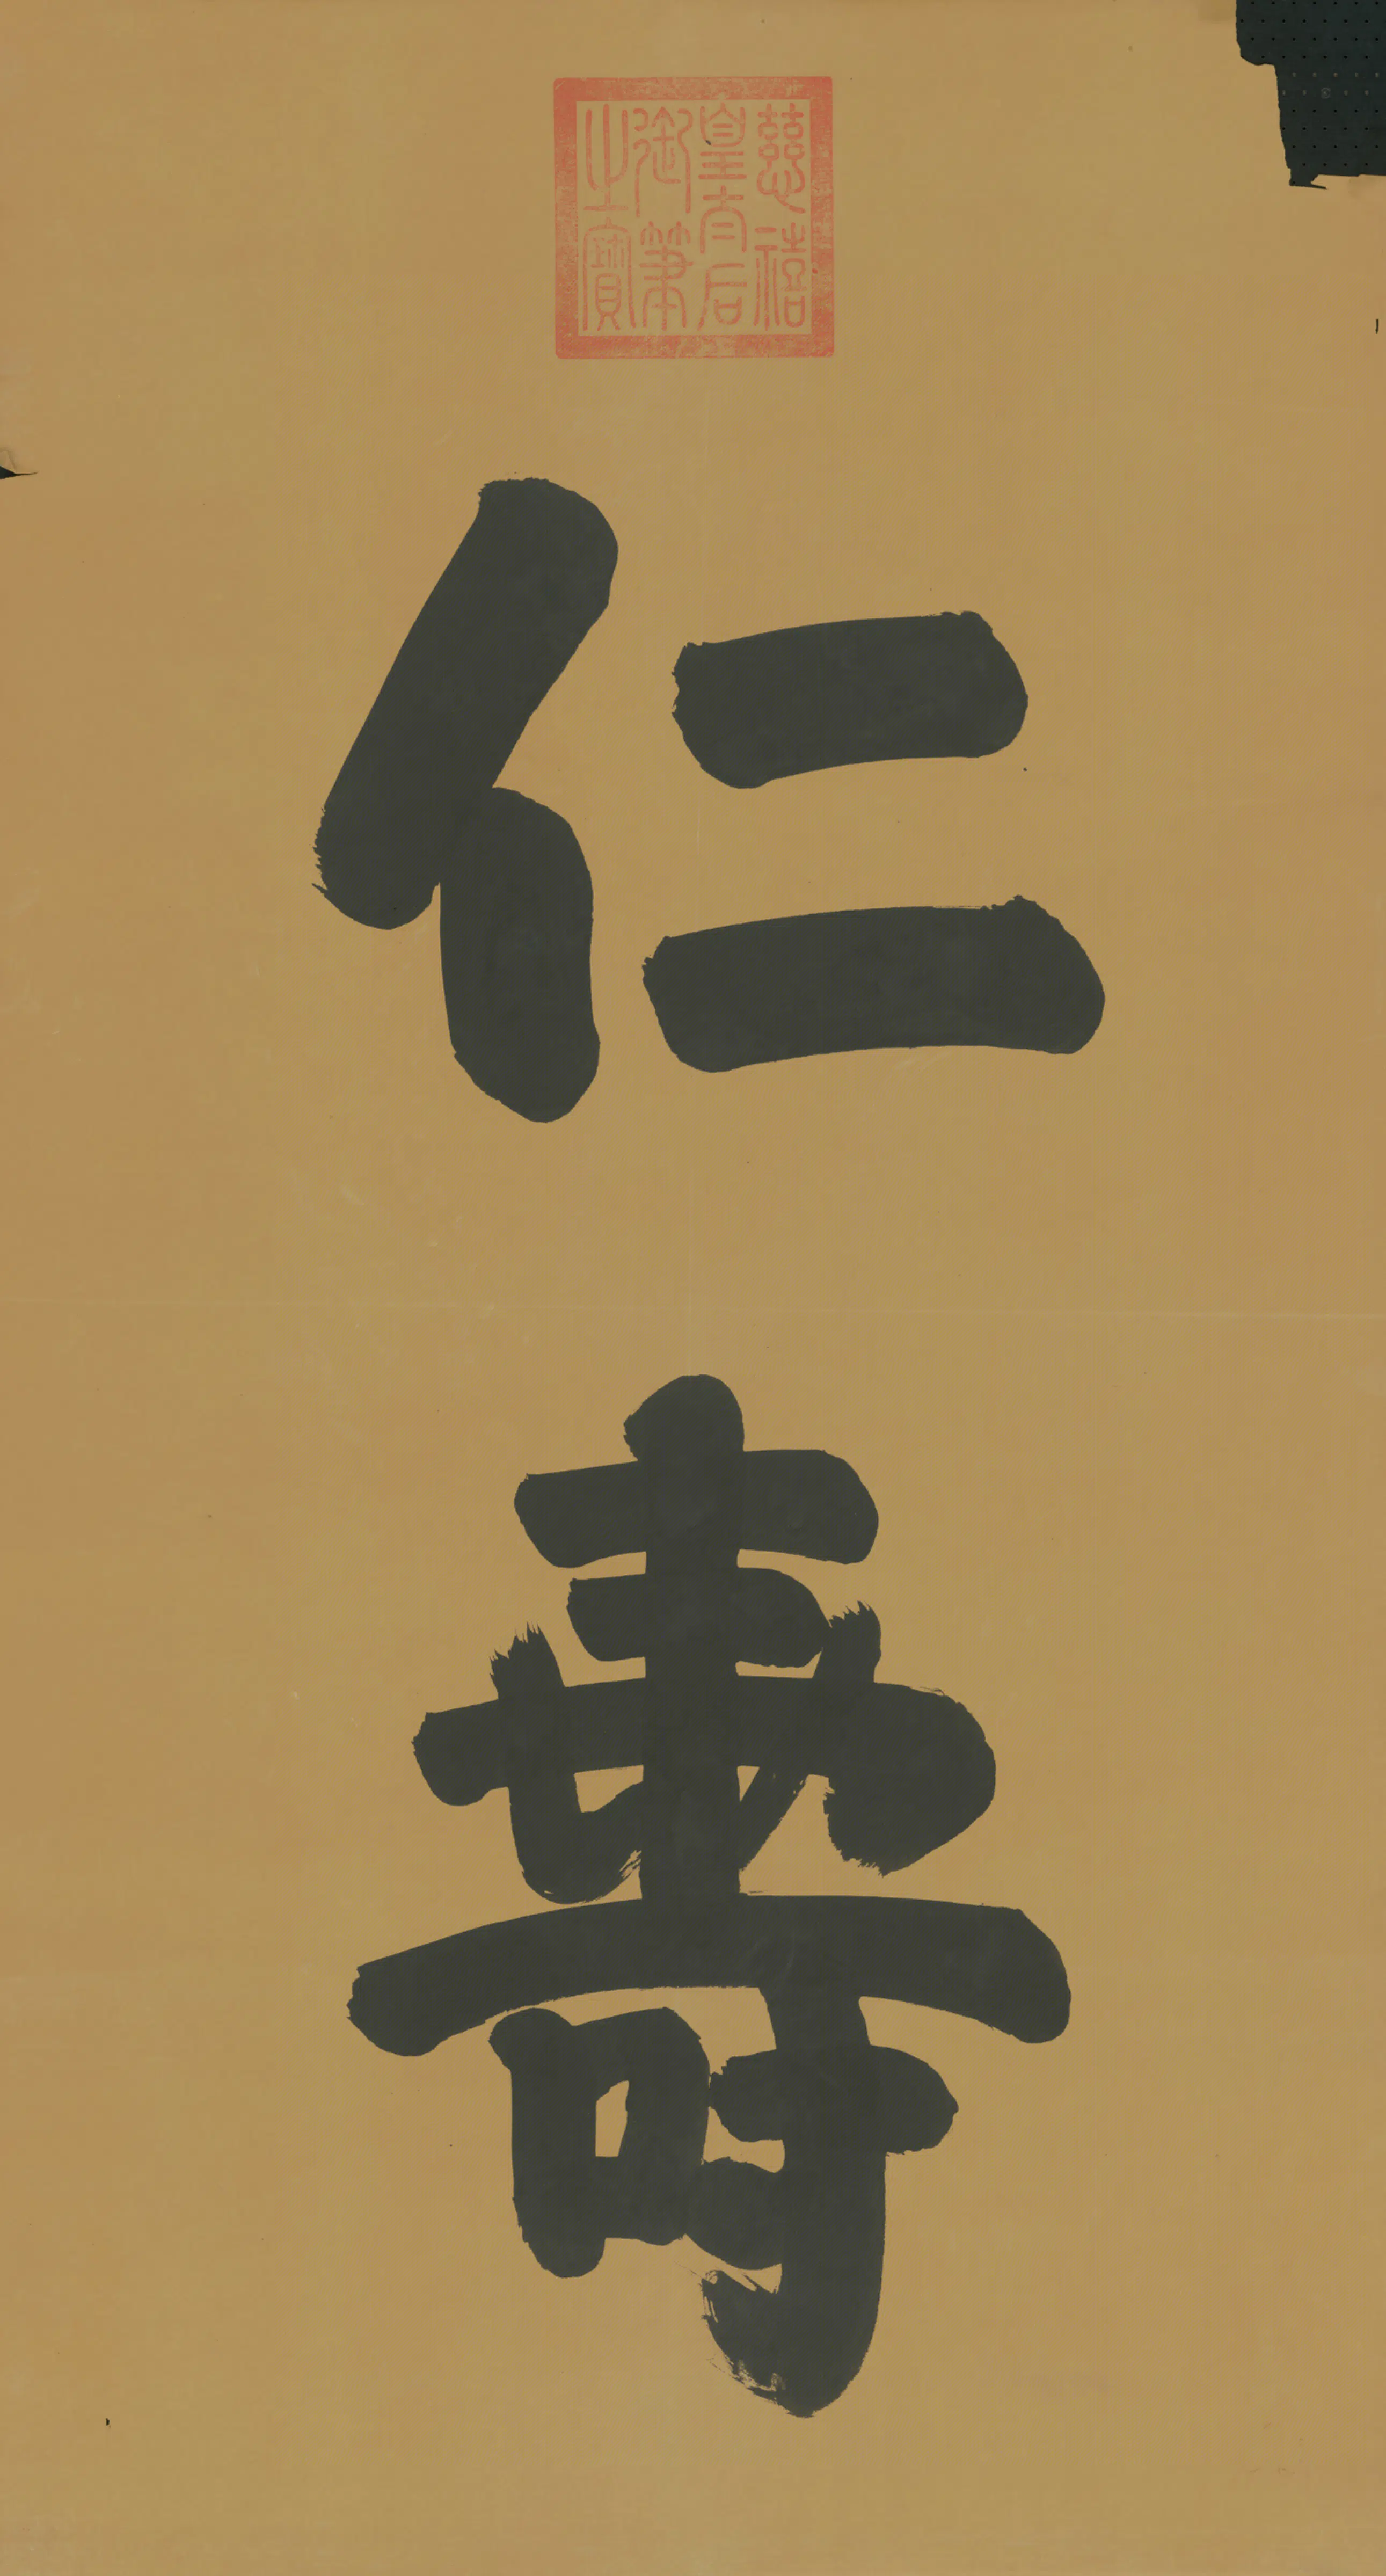 慈禧
皇太后
御筆
之寶
仁壽